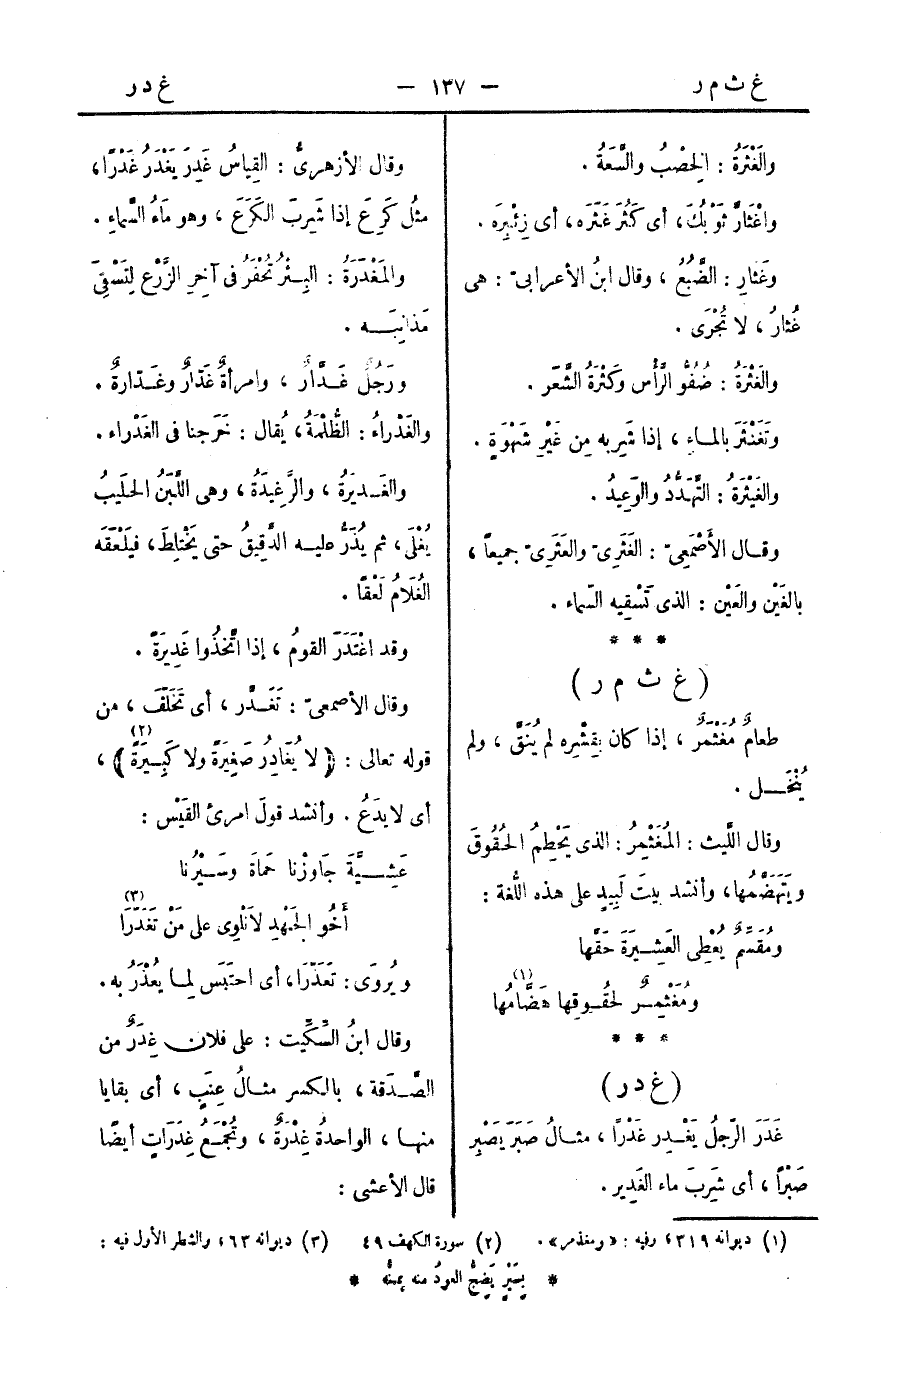 غ ث م ر
— ١٣٧ —
غ د ر
والغَثْرَةُ : الخِصْبُ والسَّعَةُ .
واغْثَارَّ ثَوْبُكَ، أى كَثُرَ غَثَرَه ، أى زِئْبِرَه .
وغَثَارِ : الضَّبُعُ ، وقال ابنُ الأعرابىّ : هى
غُثارُ ، لا تُجْرَى .
والغَثْرَةُ : ضُفُوُّ الرَّأْسِ وكَثْرَةُ الشَّعَرِ .
وتَغَنْثَرَ بالمـاءِ ، إذا شَرِبه مِن غَيْرِ شَهْوَةٍ .
والغَيْثَرَةُ : التَّهَدُّدُ والوَعِيدُ .
وقـال الأَصْمَعِىّ : الغَثَرِىّ والعَثَرِىّ جميعاً ،
بالغَيْنِ والعَيْنِ : الذى تَسْقِيه السّماء .
* * *
( غ ث م ر )
طعامٌ مُغَثْمَرٌ ، إذا كان بقِشْرِه لم يُنَقَّ ، ولم
يُنْخَـــل .
وقال اللَّيث : المُغَثْمِرُ : الذى يَحْطِمُ الحُقُوقَ
ويَتَهَضَّمُها، وأنشد بيتَ لَبِيدٍ على هذه اللُّغة :
ومُقَسِّمٌ يُعْطِى العَشِـيرَةَ حَقَّها
ومُغَثْمِـرٌ لحُقُـوقِها هَضَّامُها (١)
* * *
( غ د ر )
غَدَرَ الرّجلُ يَغْـدِر غَدْرًا ، مثـالُ صَبَرَ يَصْبِر
صَبْرًا ، أى شَرِبَ ماء الغَدِير .
وقال الأزهرىُّ : القِياسُ غَدِرَ يَغْدَرُ غَدَرًا،
مثلُ كَرِعَ إذا شَرِبَ الكَرَعَ ، وهو مَاءُ السَّماءِ .
والمَغْدَرَةُ : البِـئْرُ تُحْفَرُ فى آخِرِ الزَّرْعِ لتَسْقِىَ
مَذانِبَــه .
ورَجُلٌ غَـدَّارٌ ، وامرأةٌ غَدّارٌ وغَـدّارةٌ .
والغَدْراءُ : الظُّلْمَةُ ، يُقال : خَرَجنا فى الغَدْراء .
والغَـدِيرَةُ ، والرَّغِيدَةُ ، وهى اللَّبَنُ الحَلِيبُ
يُغْلَى، ثم يُذَرُّ عليـه الدَّقِيقُ حتى يَخْتَلِطَ، فيَلْعَقَه
الغُلامُ لَعْقًا .
وقد اغْتَدَرَ القومُ ، إذا اتَّخَذُوا غَدِيرَةً .
وقال الأصمعىّ : تَغَـدَّر ، أى تَخَلَّفَ ، من
قوله تعالى : ﴿ لا يُغَادِرُ صَغِيَرةً ولا كَبِـيرَةً ﴾ (٢) ،
أى لايدَعُ . وأنشد قولَ امرئِ القَيْسِ :
عَشِـــيَّةَ جَاوَزْنا حَمَاةَ وسَـيْرُنا
أَخُو الجَهْدِ لاَ نَلْوِى على مَنْ تَغَدَّرَا (٣)
ويُروَى : تَعَذَّرَا، أى احتَبَس لِمـا يُعْذَرُ به.
وقال ابنُ السِّكِّيت : على فلانٍ غِدَرٌ من
الصَّـدَقة ، بالكسرِ مثـالُ عِنَبٍ ، أى بقايا
منهـا ، الواحدةُ غِدْرَةٌ ، وتُجْمَعُ غِدَرَاتٍ أيضًا
قال الأعشى :
(١) ديوانه ٣١٩، وفيه : «ومغذمر» .
(٢) سورة الكهف ٤٩
(٣) ديوانه ٦٣، والشطر الأول فيه :
* بِسَيْرٍ يَضِجُّ العودُ منه يمنُّه *